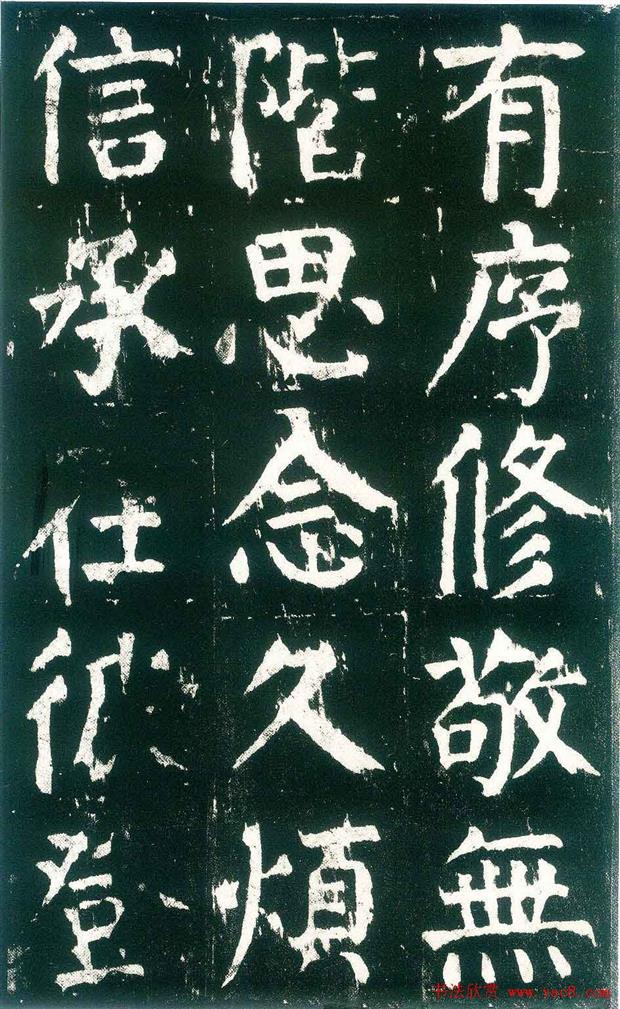 有序修敬無
階思念久煩
信承仕登
书法欣赏 www.yac8.com